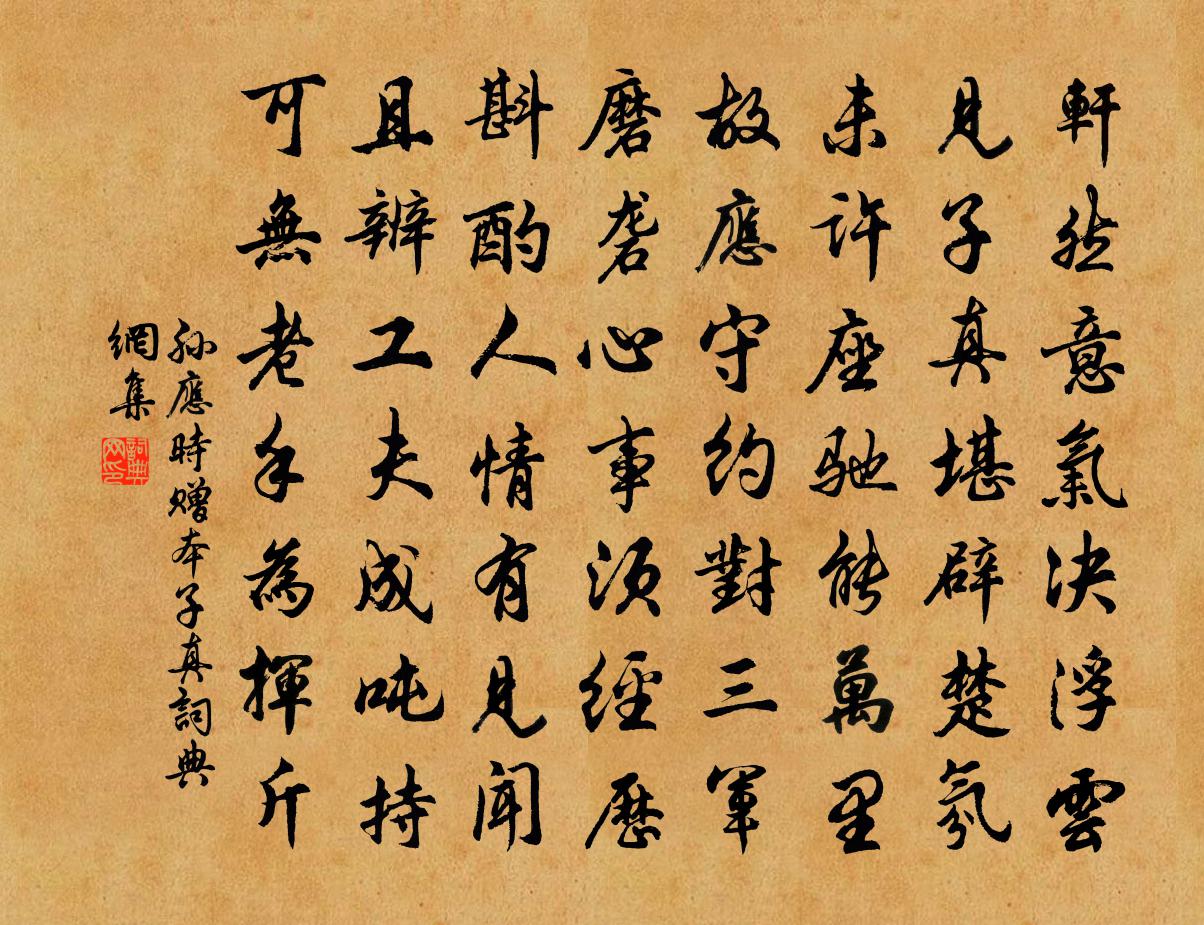 軒然意氣決浮雲
見子真堪辟楚氛
未許座馳能萬里
故應守約對三軍
磨砻心事須經歷
斟酌人情有見聞
且辨工夫成吨持
可無老手為揮斤
孫應時贈本子真詞典
網集
詞典网印